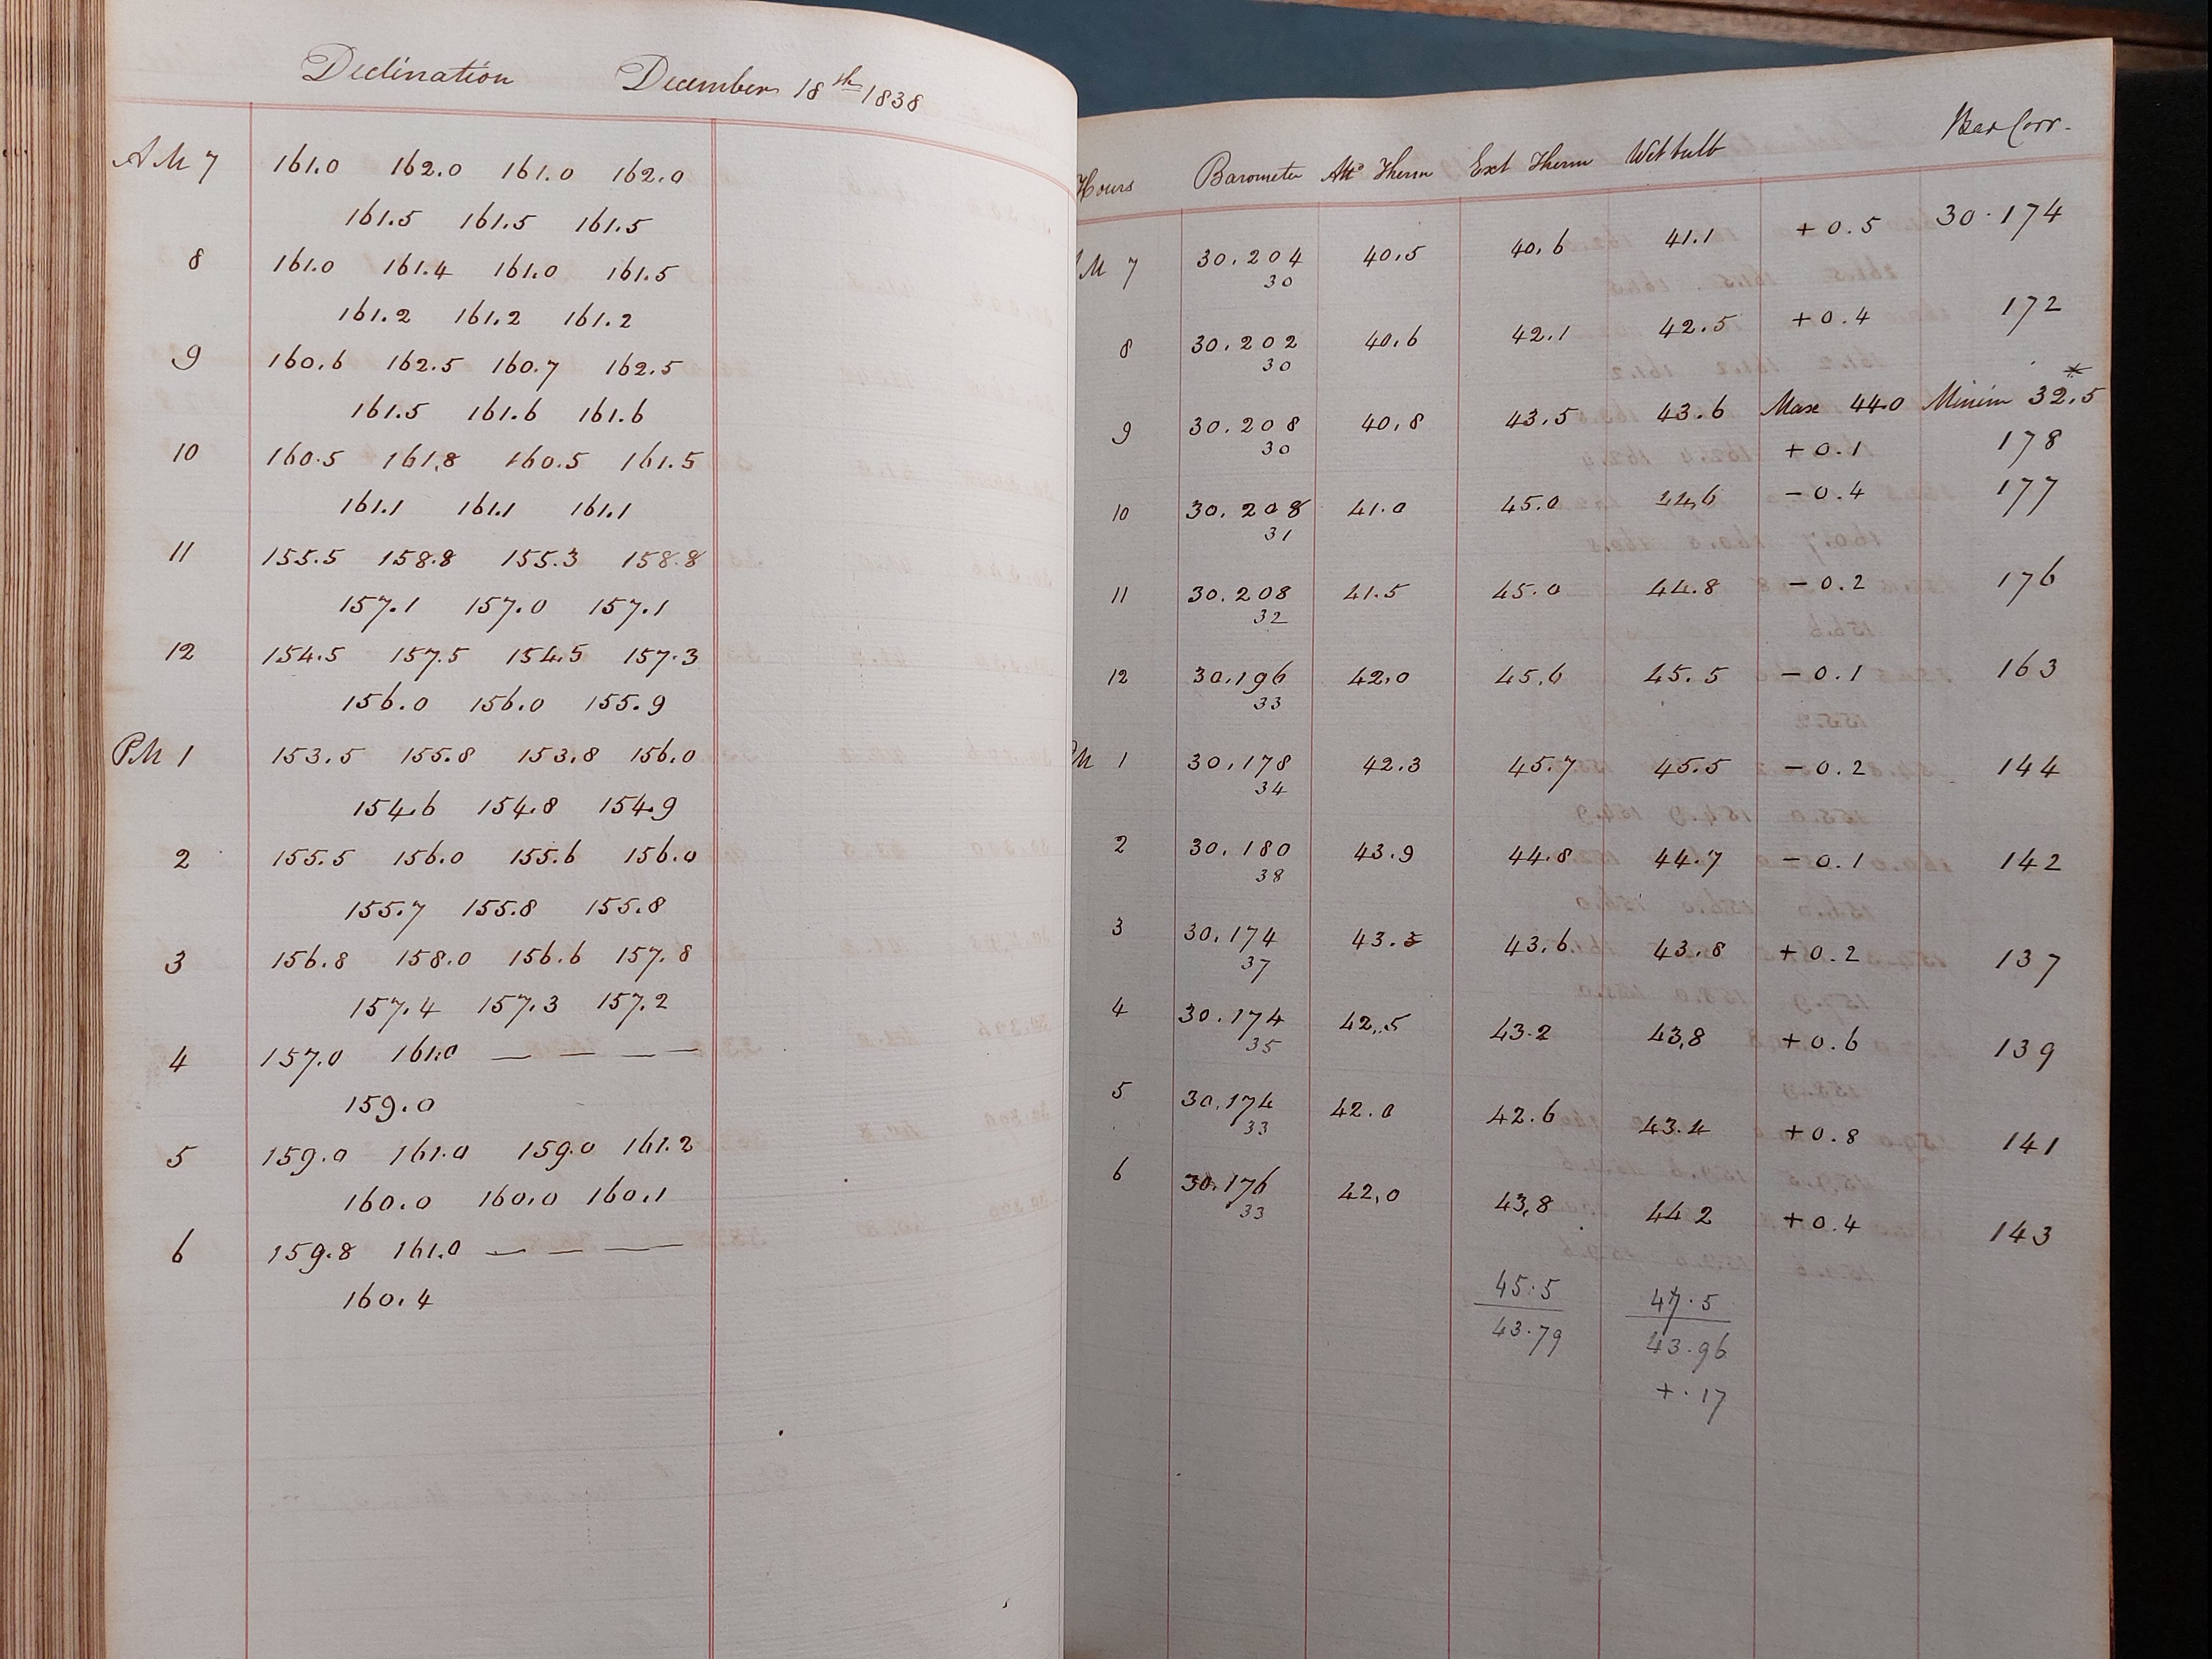 Declination December 18th 1838
AM 7 161.0 162.0 161.0 162.0
161.5 161.5 161.5
8 161.0 161.4 161.0 161.5
161.2 161.2 161.2
9 160.6 162.5 160.7 162.5
161.5 161.6 161.6
10 160.5 161.8 160.5 161.5
161.1 161.1 161.1
11 155.5 158.8 155.3 158.8
157.1 157.0 157.1
12 154.5 157.5 154.5 157.3
156.0 156.0 155.9
PM 1 153.5 155.8 153.8 156.0
154.6 154.8 154.9
2 155.5 156.0 155.6 156.0
155.7 155.8 155.8
3 156.8 158.0 156.6 157.8
157.4 157.3 157.2
4 157.0 161.0 — — —
159.0
5 159.0 161.0 159.0 161.2
160.0 160.0 160.1
6 159.8 161.0 — — —
160.4
Hours Barometer Att^d Therm Ext Therm Wet bulb Bar Corr.
M 7 30.204 40.5 40.6 41.1 +0.5 30.174
30
8 30.202 40.6 42.1 42.5 +0.4 172
30
9 30.208 40.8 43.5 43.6 Max 44.0 Minim 32.5 *
30 +0.1 178
10 30.208 41.0 45.0 44.6 -0.4 177
31
11 30.208 41.5 45.0 44.8 -0.2 176
32
12 30.196 42.0 45.6 45.5 -0.1 163
33
PM 1 30.178 42.3 45.7 45.5 -0.2 144
34
2 30.180 43.9 44.8 44.7 -0.1 142
38
3 30.174 43.3 43.6 43.8 +0.2 137
37
4 30.174 42.5 43.2 43.8 +0.6 139
35
5 30.174 42.0 42.6 43.4 +0.8 141
33
6 30.176 42.0 43.8 44.2 +0.4 143
33
45.5 47.5
43.79 43.96
+.17